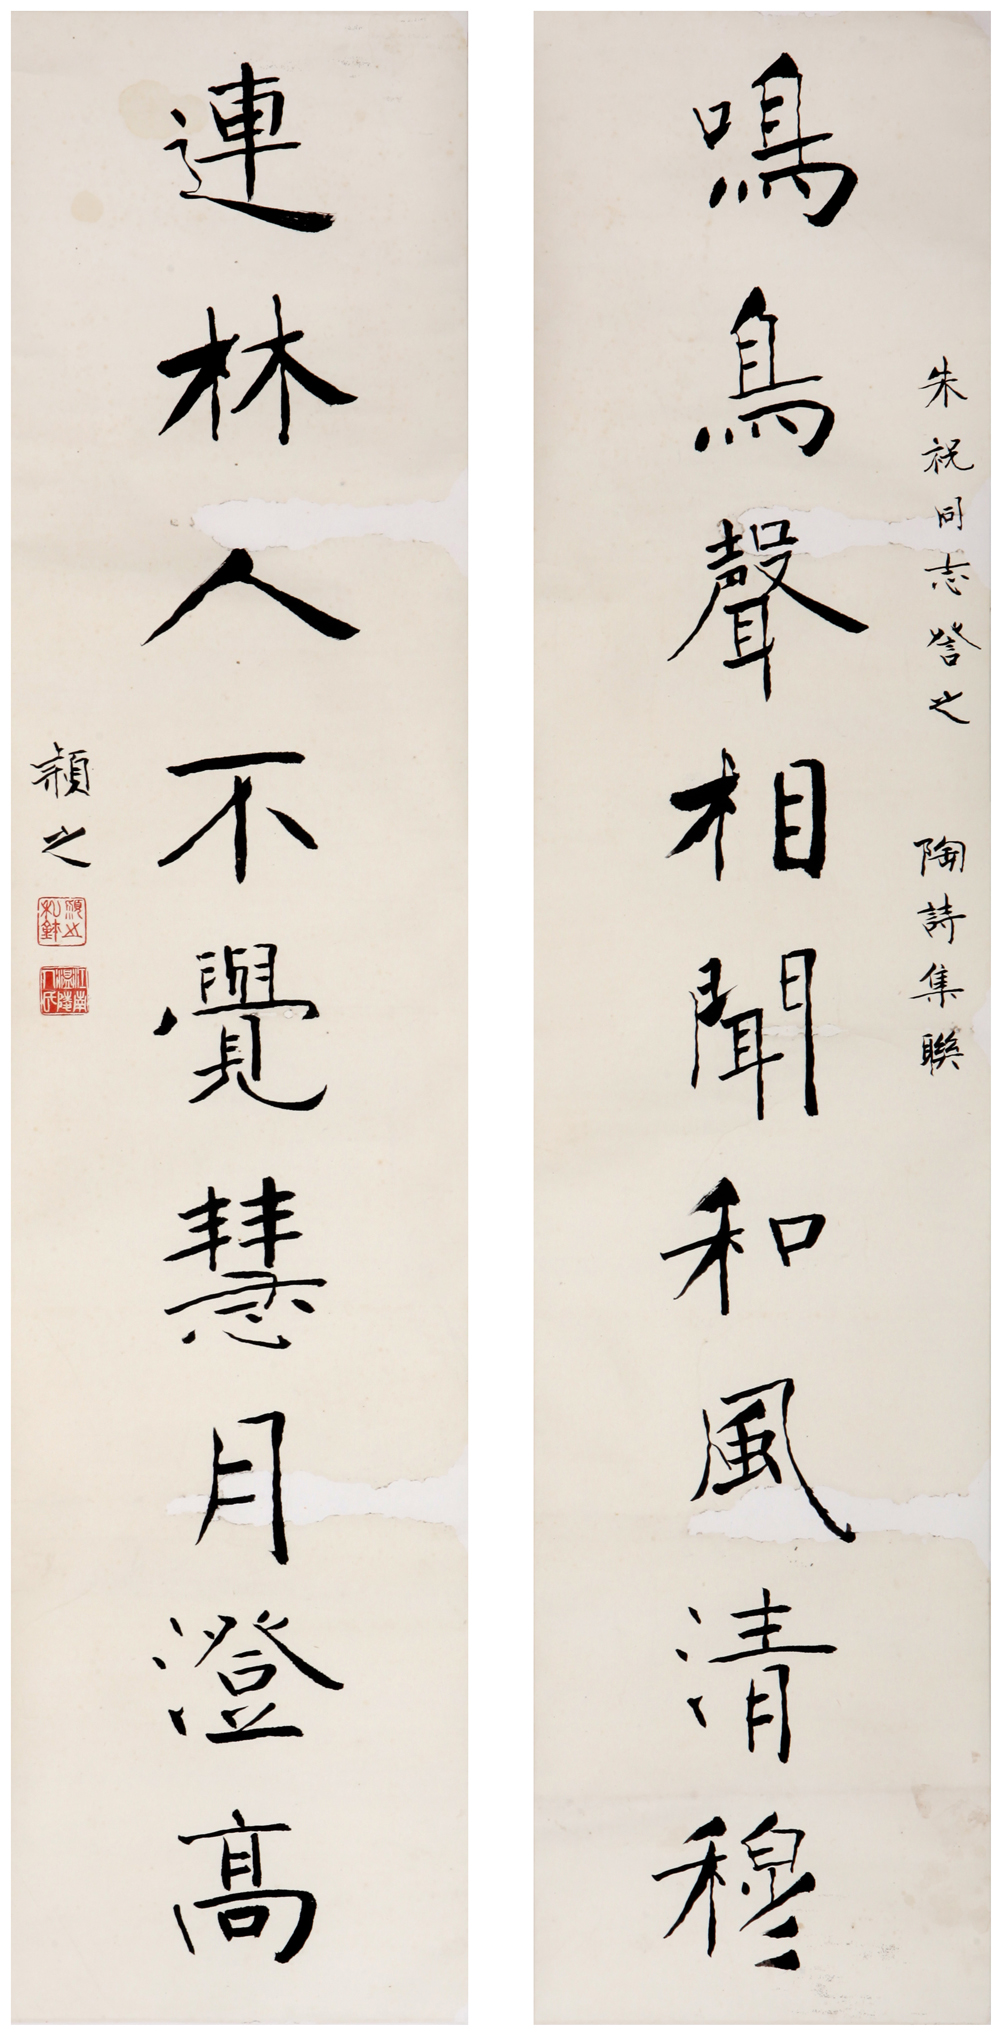 朱祝同志詧之
陶詩集聯
鳴鳥聲相聞和風清穆
連林人不覺慧月澄高
潁之